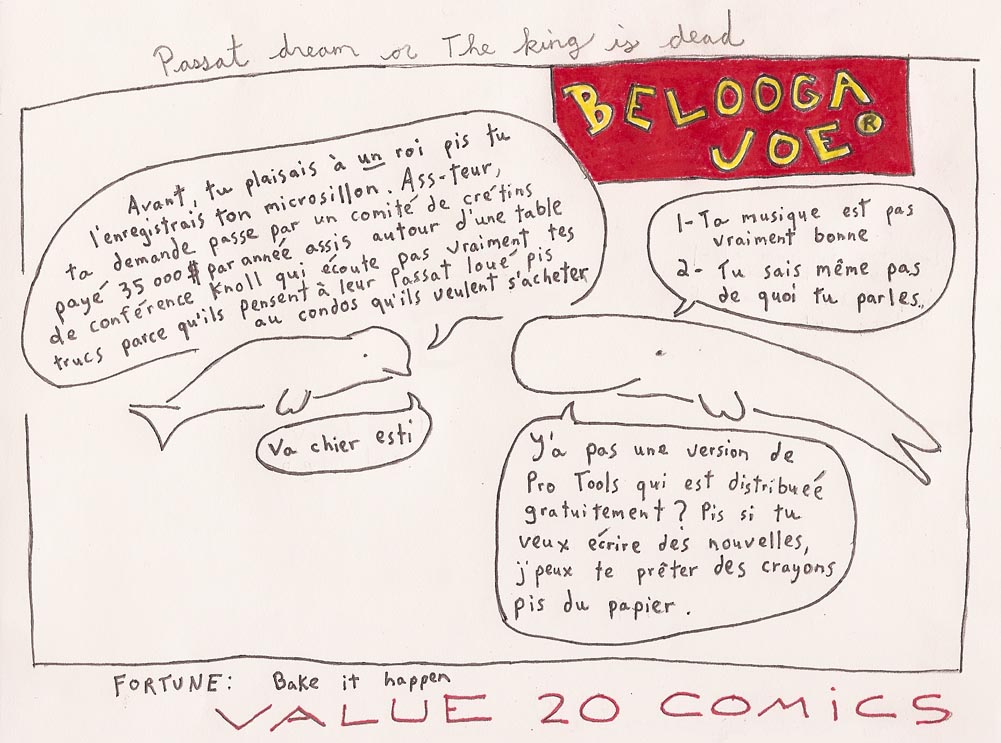 Passat dream or The king is dead
BELOOGA
JOE®
Avant, tu plaisais à un roi pis tu
l'enregistrais ton microsillon. Ass-teur,
ta demande passe par un comité de crétins
payé 35 000$ par année assis autour d'une table
de conférence Knoll qui écoute pas vraiment tes
trucs parce qu'ils pensent à leur Passat loué pis
au condos qu'ils veulent s'acheter
1- Ta musique est pas
vraiment bonne
2- Tu sais même pas
de quoi tu parles..
Va chier esti
Y'a pas une version de
Pro Tools qui est distribueé
gratuitement? Pis si tu
veux écrire des nouvelles,
j'peux te prêter des crayons
pis du papier.
FORTUNE: Bake it happen
VALUE 20 COMICS